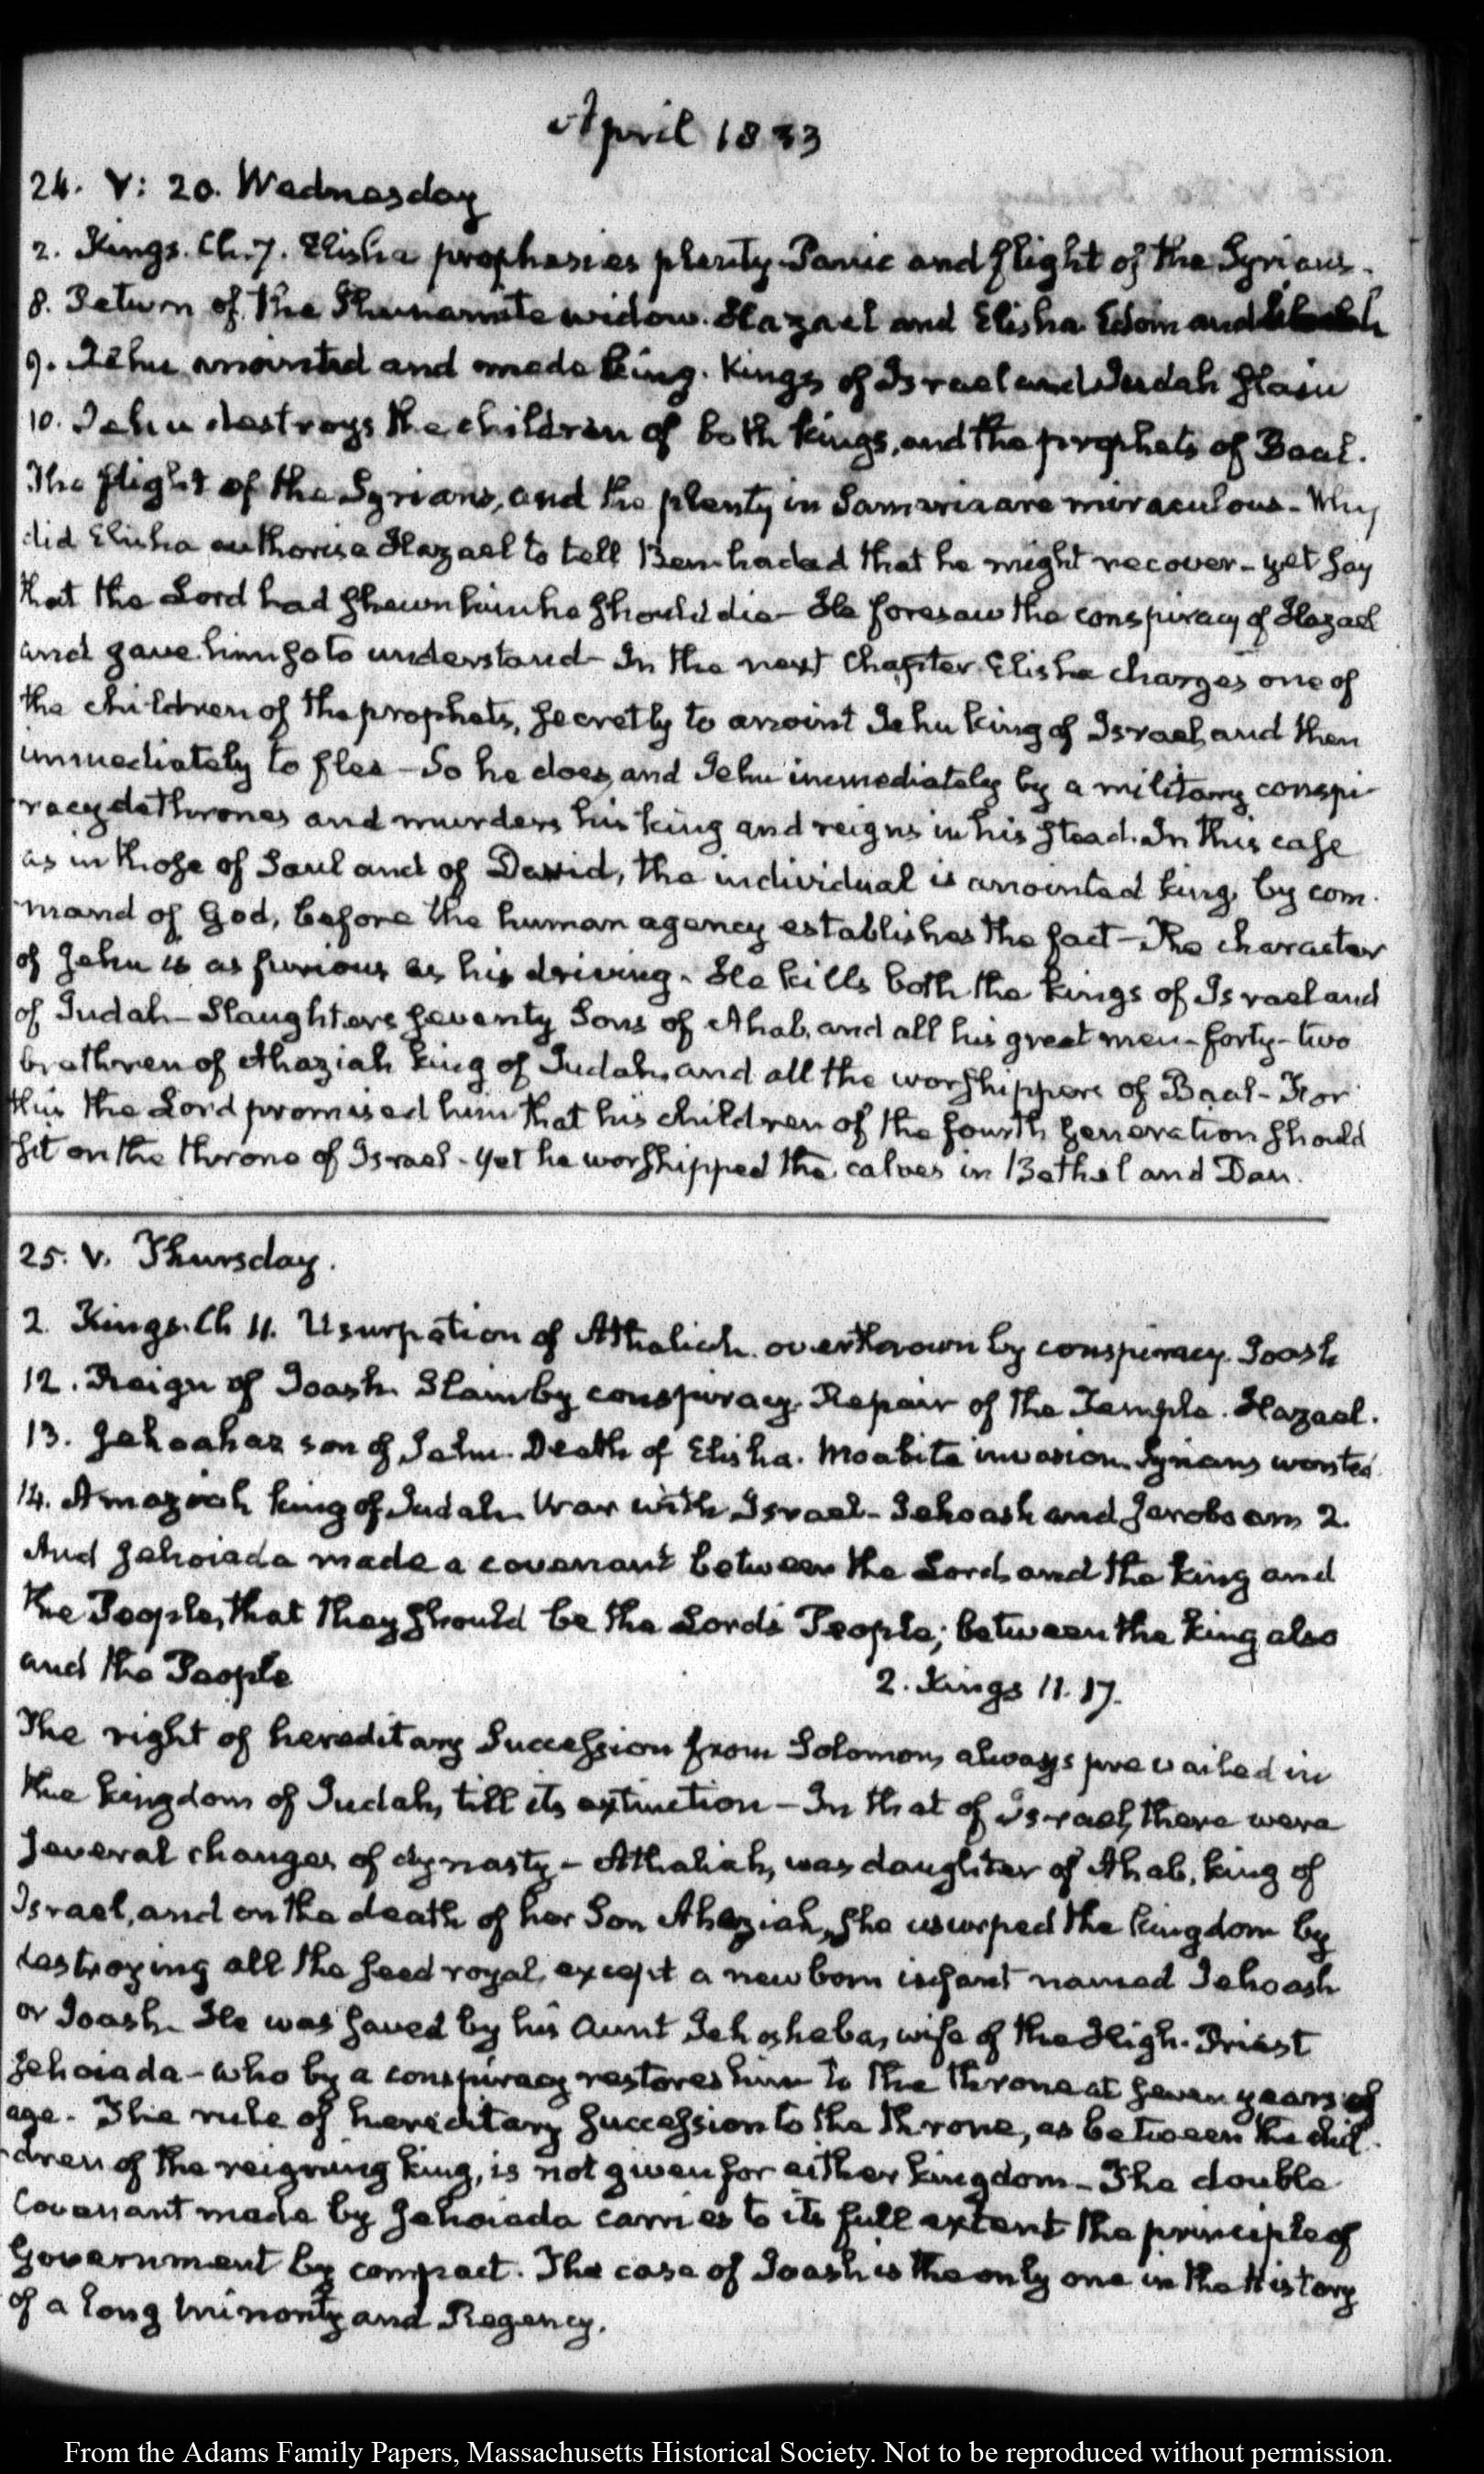 April 1833
24. V: 20. Wednesday
2. Kings. Ch. 7. Elisha prophesies plenty. Panic and flight of the Syrians.
8. Return of the Shunamite widow. Hazael and Elisha. Edom and
9. Jehu anointed and made king. Kings of Israel and Judah slain
10. Jehu destroys the children of both kings, and the prophets of Baal.
The flight of the Syrians, and the plenty in Samaria are miraculous - Why
did Elisha authorise Hazael to tell Benhadad that he might recover - yet say
that the Lord had shewn him he should die - He foresaw the conspiracy of Hazael
and gave him so to understand - In the next Chapter Elisha charges one of
the children of the prophets, secretly to anoint Jehu king of Israel, and then
immediately to flee - So he does, and Jehu immediately by a military conspi-
racy dethrones and murders his king and reigns in his stead. In this case
as in those of Saul and of David, the individual is anointed king, by com-
mand of God, before the human agency establishes the fact - The character
of Jehu is as furious as his driving. He kills both the kings of Israel and
of Judah - Slaughters seventy Sons of Ahab, and all his great men - forty-two
brethren of Ahaziah king of Judah, and all the worshippers of Baal - For
this the Lord promised him that his children of the fourth generation should
sit on the throne of Israel - yet he worshipped the calves in Bethel and Dan.
25. V. Thursday.
2. Kings. Ch 11. Usurpation of Athaliah. overthrown by conspiracy. Joash
12. Reign of Joash. Slain by conspiracy. Repair of the Temple. Hazael.
13. Jehoahaz son of Jehu. Death of Elisha. Moabite invasion. Syrians worsted
14. Amaziah king of Judah. War with Israel - Jehoash and Jeroboam 2.
And Jehoiada made a covenant between the Lord, and the king and
the People, that they should be the Lord's People; between the king also
and the People 2. Kings 11. 17.
The right of hereditary Succession from Solomon, always prevailed in
the kingdom of Judah, till its extinction - In that of Israel, there were
several changes of dynasty - Athaliah, was daughter of Ahab, king of
Israel, and on the death of her Son Ahaziah, she usurped the kingdom by
destroying all the seed royal, except a new born infant named Jehoash
or Joash. He was saved by his Aunt Jehosheba, wife of the High-Priest
Jehoiada - who by a conspiracy restores him to the throne at seven years of
age. The rule of hereditary succession to the throne, as between the chil-
dren of the reigning king, is not given for either kingdom - The double
Covenant made by Jehoiada carries to its full extent the principle of
Government by compact. The case of Joash is the only one in the History
of a long minority and Regency.
From the Adams Family Papers, Massachusetts Historical Society. Not to be reproduced without permission.